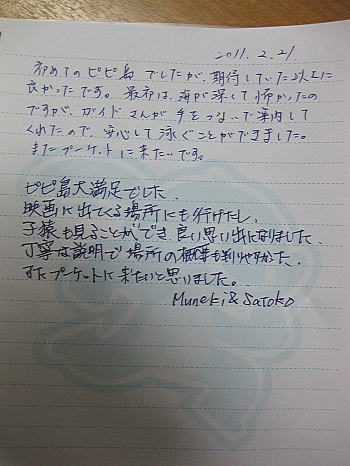 2011.2.21
初めてのピピ島でしたが、期待していた以上に
良かったです。最初は、海が深くて怖かったの
ですが、ガイドさんが手をつないで案内して
くれたので、安心して泳ぐことができました。
またプーケットに来たいです。
ピピ島大満足でした。
映画に出てくる場所にも行けたし、
子猿も見ることができ、良い思い出になりました。
丁寧な説明で場所の概要も判りやすかった。
またプーケットに来たいと思いました。
Muneki & Satoko